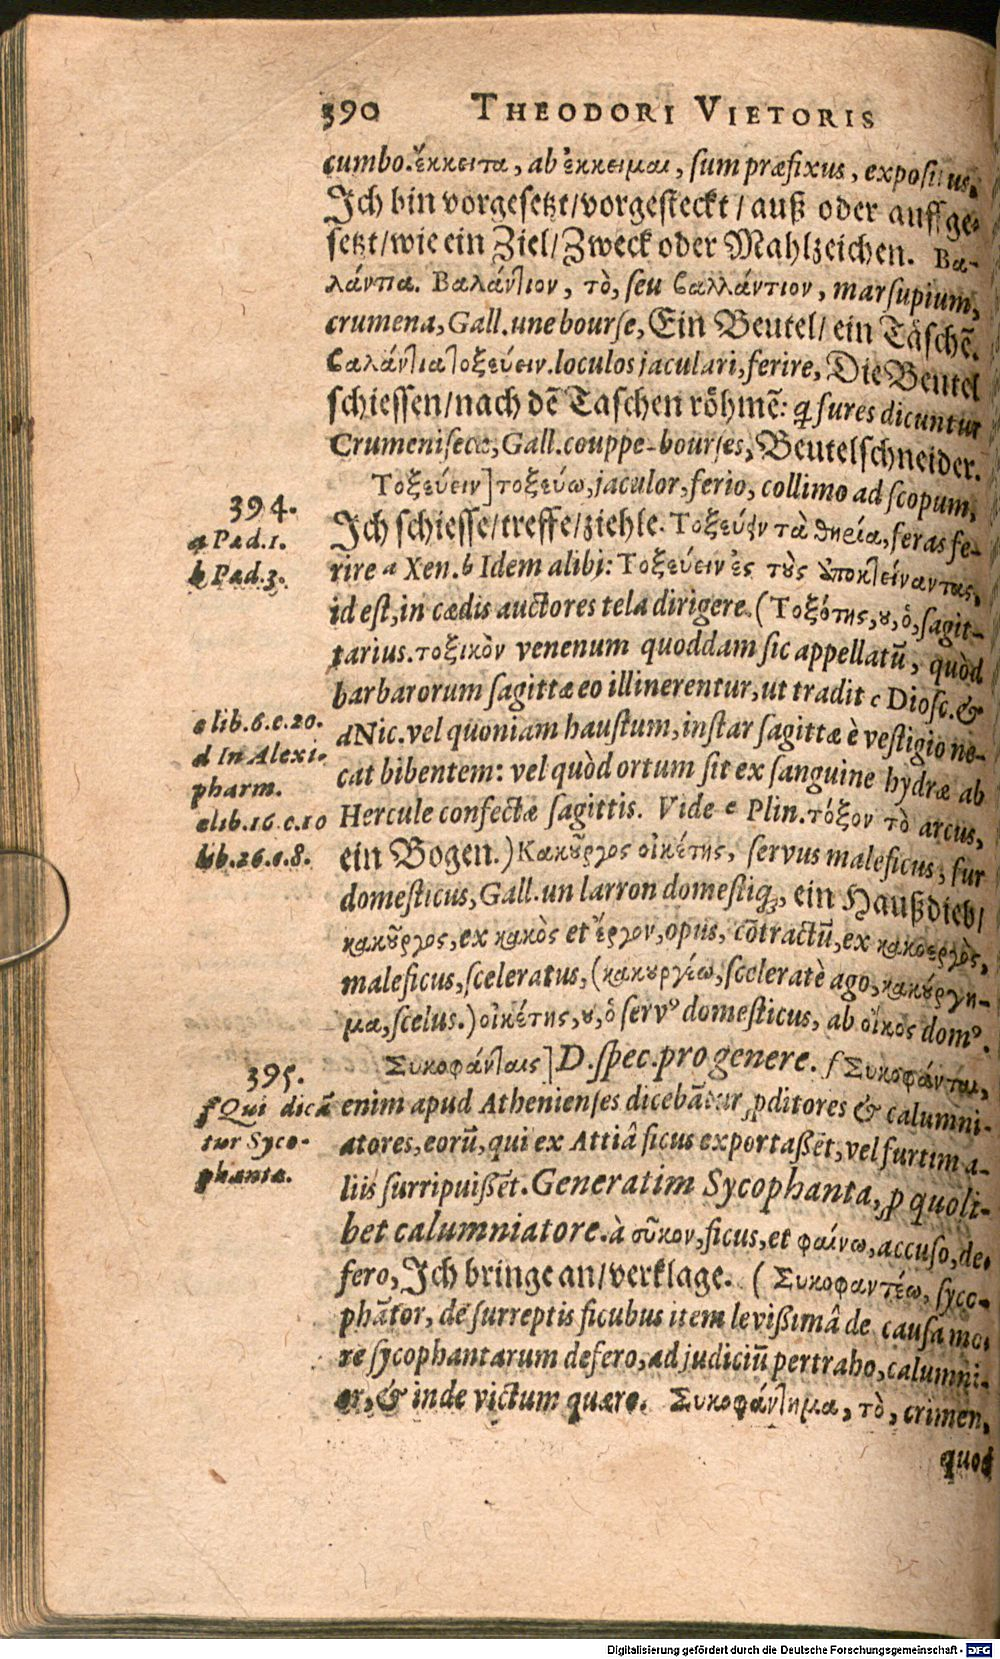 390 THEODORI VIETORIS
cumbo. ἔκκειται, ab ἔκκειμαι, sum præfixus, expositus.
Ich bin vorgesetzt/vorgesteckt/auß oder auff ge-
setzt/wie ein Ziel/Zweck oder Mahlzeichen. Βα-
λάντια. Βαλάντιον, τὸ, seu βαλλάντιον, marsupium,
crumena, Gall. une bourse, Ein Beutel/ ein Täschē.
βαλάντια τοξεύειν. loculos jaculari, ferire, Die Beutel
schiessen/nach dē Taschen röhmē: ꝗ fures dicuntur
Crumenisecæ, Gall. couppe-bourses, Beutelschneider.
394.
Τοξεύειν] τοξεύω, jaculor, ferio, collimo ad scopum,
a Pæd.1.
Ich schiesse/treffe/ziehle. Τοξεύειν τὰ θηρία, feras fe-
b Pæd.3.
rire a Xen. b Idem alibi: Τοξεύειν ἐς τοὺς ὑποκτείναντας,
id est, in cædis auctores tela dirigere. (Τοξότης, ου, ὁ, sagit-
tarius. τοξικὸν venenum quoddam sic appellatū, quòd
barbarorum sagittæ eo illinerentur, ut tradit c Diosc. &
c lib.6.c.20.
d Nic. vel quoniam haustum, instar sagittæ è vestigio ne-
d In Alexi-
pharm.
cat bibentem: vel quòd ortum sit ex sanguine hydræ ab
e lib.16.c.10
Hercule confectæ sagittis. Vide e Plin. τόξον τὸ arcus,
lib.26.c.8.
ein Bogen.) Κακοῦργος οἰκέτης, servus maleficus, fur
domesticus, Gall. un larron domestiq;, ein Haußdieb/
κακοῦργος, ex κακὸς et ἔργον, opus, cōtractū, ex κακοεργὸς,
maleficus, sceleratus, (κακουργέω, sceleratè ago, κακούργη-
μα, scelus.) οἰκέτης, ου, ὁ servꝰ domesticus, ab οἶκος domꝰ.
395.
Συκοφάνταις] D. spec. pro genere. f Συκοφάνται,
f Qui dicā-
tur Syco-
phantæ.
enim apud Athenienses dicebātur ꝓditores & calumni-
atores, eorū, qui ex Attiâ ficus exportaßēt, vel furtim a-
liis surripuißēt. Generatim Sycophanta, ꝓ quoli-
bet calumniatore. à σῦκον, ficus, et φαίνω, accuso, de-
fero, Ich bringe an/verklage. (Συκοφαντέω, syco-
phātor, de surreptis ficubus item levißimâ de causa mo-
re sycophantarum defero, ad judiciū pertraho, calumni-
or, & inde victum quæro. Συκοφάντημα, τὸ, crimen,
quod
Digitalisierung gefördert durch die Deutsche Forschungsgemeinschaft - DFG